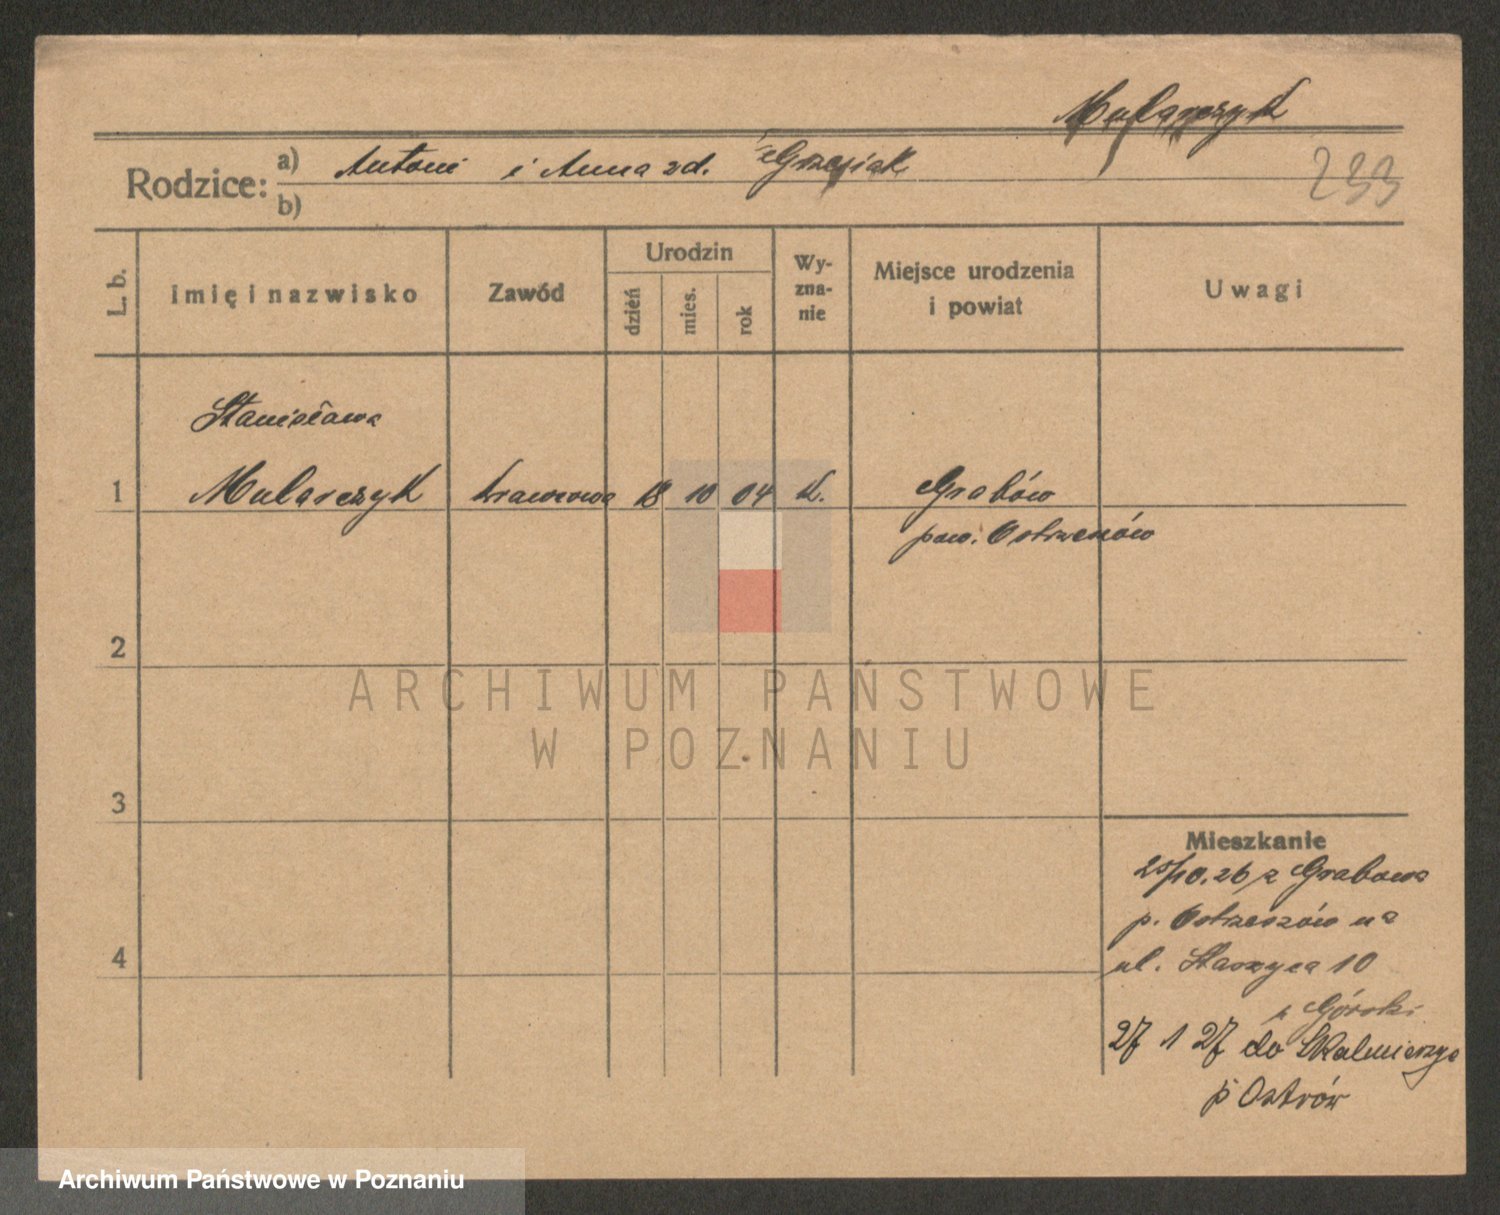 Mularczyk
Rodzice: a) Antoni i Anna zd. Grzesiak
233
b)
L. b. imię i nazwisko Zawód Urodzin dzień mies. rok Wyznanie Miejsce urodzenia i powiat Uwagi
Stanisława
1 Mularczyk krawcowa 18 10 04 k. Grabów
pow. Ostrzeszów
2
ARCHIWUM PAŃSTWOWE
W POZNANIU
3
Mieszkanie
25/10.26 z Grabowa
p. Ostrzeszów na
4
ul. Staszyca 10
u Górski
27 1 27 do Skalmierzyc
p Ostrów
Archiwum Państwowe w Poznaniu